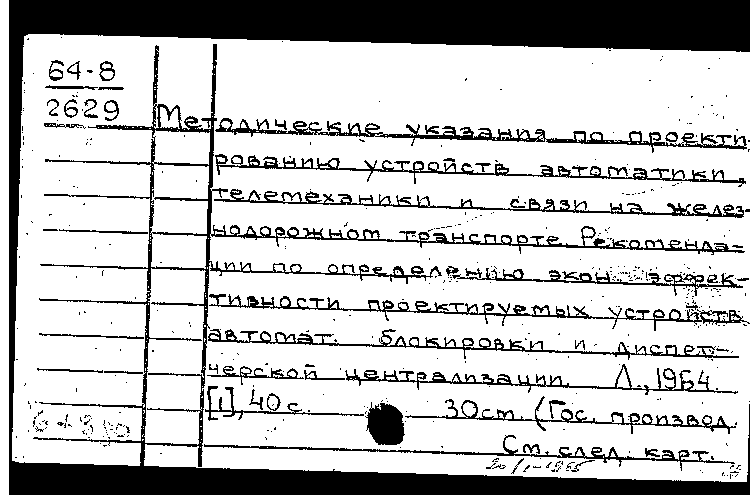 64-8
2629
Методические указания по проекти-
рованию устройств автоматики,
телемеханики и связи на желез-
нодорожном транспорте. Рекоменда-
ции по определению экон. эффек-
тивности проектируемых устройств
автомат. блокировки и диспет-
черской централизации. Л., 1964.
[1], 40 с. 30 см. (Гос. производ.
См. след. карт.